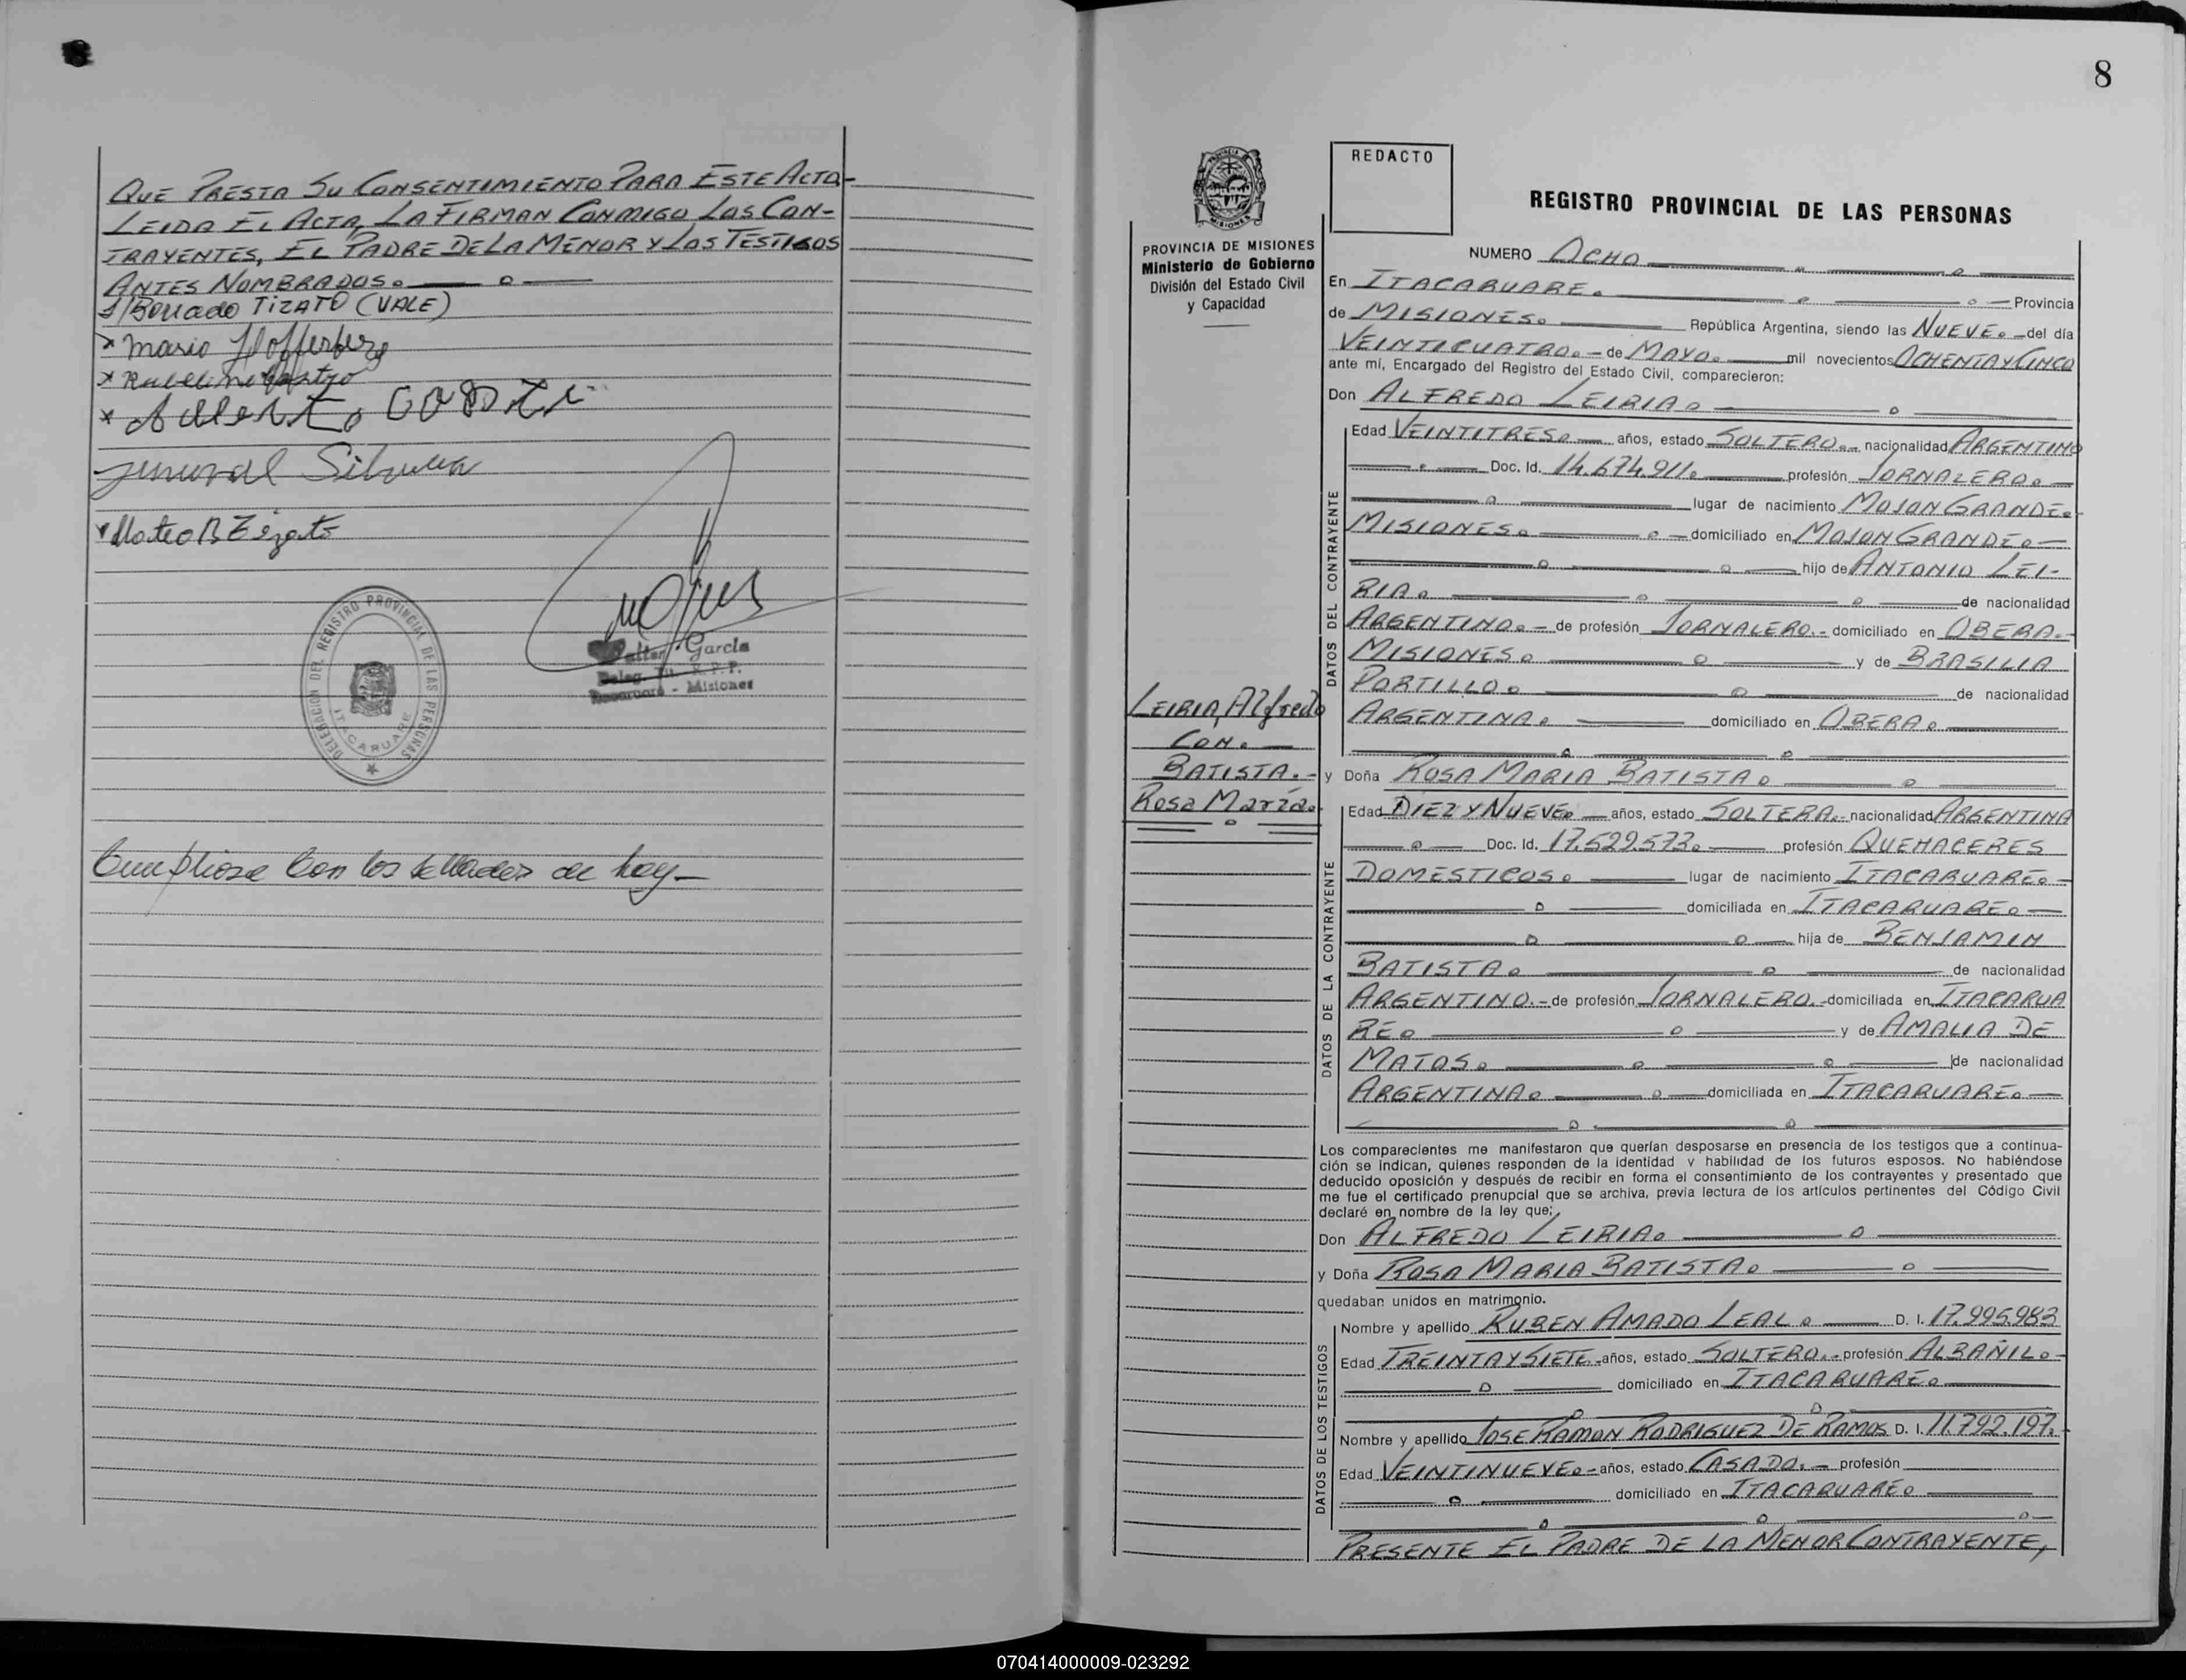 QUE PRESTA SU CONSENTIMIENTO PARA ESTE ACTO-
LEIDA EL ACTA, LA FIRMAN CONMIGO LOS CON-
TRAYENTES, EL PADRE DE LA MENOR Y LOS TESTIGOS
ANTES NOMBRADOS.
TIZATO (VALE)
Mario
Mateo B
DELEGACION DEL REGISTRO PROVINCIAL DE LAS PERSONAS
ITACARUARE
García
Deleg.
- Misiones
Cumpliose con los sellados de hoy-
8
REDACTO
REGISTRO PROVINCIAL DE LAS PERSONAS
PROVINCIA DE MISIONES
Ministerio de Gobierno
División del Estado Civil
y Capacidad
NUMERO OCHO
En ITACARUARE. Provincia
de MISIONES. República Argentina, siendo las NUEVE. del día
VEINTICUATRO.- de MAYO. mil novecientos OCHENTA Y CINCO
ante mí, Encargado del Registro del Estado Civil, comparecieron:
Don ALFREDO LEIRIA.
DATOS DEL CONTRAYENTE
Edad VEINTITRES. años, estado SOLTERO.- nacionalidad ARGENTINO
Doc. Id. 14.674.911. profesión JORNALERO.
lugar de nacimiento MOJON GRANDE.
MISIONES. domiciliado en MOJON GRANDE.
hijo de ANTONIO LEI-
RIA. de nacionalidad
ARGENTINO.- de profesión JORNALERO.- domiciliado en OBERA.-
MISIONES. y de BRASILIA
PORTILLO. de nacionalidad
ARGENTINA. domiciliado en OBERA.
LEIRIA, Alfredo
CON.
BATISTA.-
Rosa María.
y Doña ROSA MARIA BATISTA.
DATOS DE LA CONTRAYENTE
Edad DIEZ Y NUEVE. años, estado SOLTERA.- nacionalidad ARGENTINA
Doc. Id. 17.529.573. profesión QUEHACERES
DOMESTICOS. lugar de nacimiento ITACARUARE.
domiciliada en ITACARUARE.
hija de BENJAMIN
BATISTA. de nacionalidad
ARGENTINO.- de profesión JORNALERO.- domiciliada en ITACARUA
RE. y de AMALIA DE
MATOS. de nacionalidad
ARGENTINA. domiciliada en ITACARUARE.
Los comparecientes me manifestaron que querían desposarse en presencia de los testigos que a continua-
ción se indican, quienes responden de la identidad y habilidad de los futuros esposos. No habiéndose
deducido oposición y después de recibir en forma el consentimiento de los contrayentes y presentado que
me fue el certificado prenupcial que se archiva, previa lectura de los artículos pertinentes del Código Civil
declaré en nombre de la ley que;
Don ALFREDO LEIRIA.
y Doña ROSA MARIA BATISTA.
quedaban unidos en matrimonio.
DATOS DE LOS TESTIGOS
Nombre y apellido RUBEN AMADO LEAL. D. I. 17.995.983
Edad TREINTA Y SIETE.- años, estado SOLTERO.- profesión ALBAÑIL.
domiciliado en ITACARUARE.
Nombre y apellido JOSE RAMON RODRIGUEZ DE RAMOS D. I. 11.792.197.
Edad VEINTINUEVE.- años, estado CASADO.- profesión
domiciliado en ITACARUARE.
PRESENTE EL PADRE DE LA MENOR CONTRAYENTE,
070414000009-023292